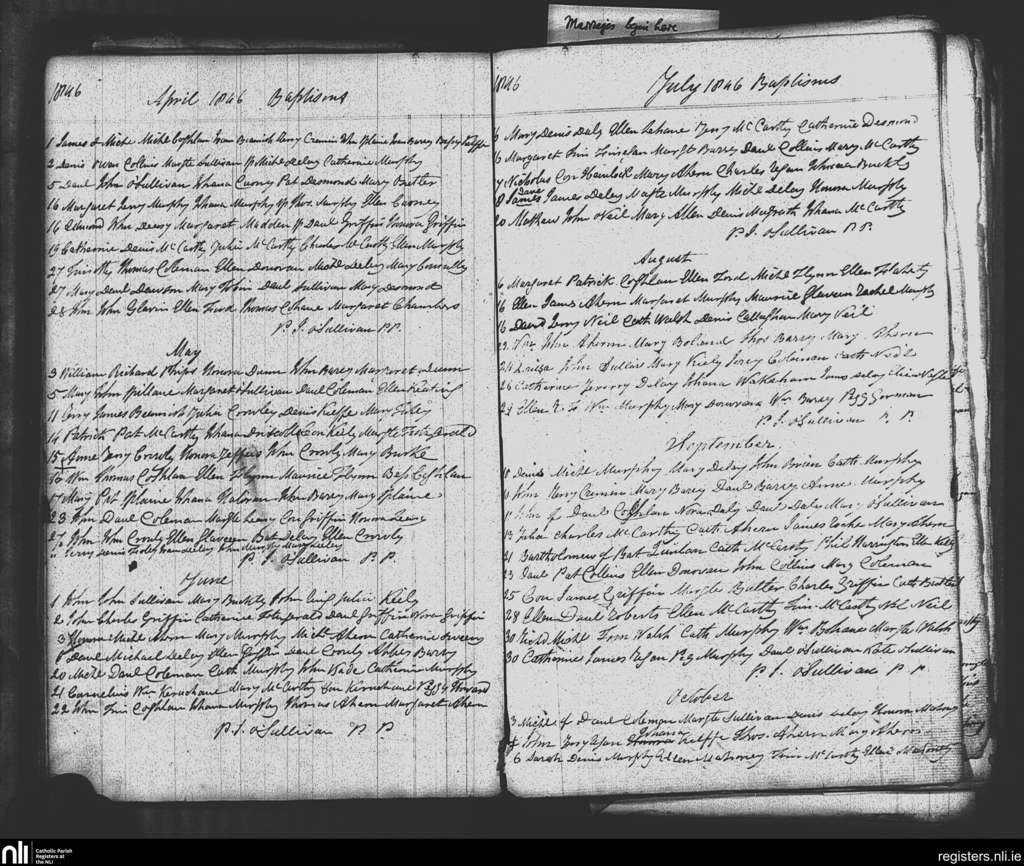 Marriages begin here
1846
April 1846 Baptisms
1 James of Michl Michl Coghlan
2 Denis Owen Collins Margt Sullivan Sp Michl Delay Catherine Murphy
5 Danl John O'Sullivan Johana Pat Desmond Mary Butler
16 Margaret Jerry Murphy Johana Murphy Sp Thos. Murphy Ellen Carney
16 Edmond Wm Deasy Margaret Madden Sp Danl Griffin Honora Griffin
19 Catherine Denis McCarthy Julia McCarthy Charles McCarthy Ellen Murphy
27 Timothy Thomas Coleman Ellen Donovan Michl Delay Mary Connolly
27 Mary Danl Dawson Mary Tobin Danl Sullivan Mary Desmond
28 Wm John Glavin Ellen Ford Thomas Cohane Margaret Chambers
P. J. O'Sullivan P.P.
May
3 William Richard Phips Honora Dunn John Barry Margaret Dunn
5 Mary John Margaret Sullivan Danl Coleman Ellen Keating
11 Jerry James Beamish Julia Crowley Denis Keeffe Mary
14 Patrick Pat McCarthy Johana Driscoll Con Kiely Margt Fitzgerald
15 Anne Jerry Crowly Honora Jeffers Wm Crowly Mary Burke
Wm Thomas Coghlan Ellen Flynn Maurice Flynn Bess Coghlan
17 Mary Pat Splaine Johana Haloran John Barry Mary Splaine
23 Wm Danl Coleman Margt Leary Con Griffin Honora Leary
27 John Wm Crowly Ellen Slaveen Bat Delay Ellen Crowly
Jerry Denis Foley Delay John Murphy Mary Delay
P. J. O'Sullivan P. P.
June
1 John John Sullivan Mary Buckly John Julia Kiely
2 John Charles Griffin Catherine Fitzgerald Danl Griffin Nora Griffin
3 Michl Ahern Mary Murphy Michl Ahern Catherine Sweeny
8 Danl Michael Delay Ellen Griffin Danl Crowly Barry
20 Michl Danl Coleman Cath Murphy John Wade Catherine Murphy
21 Cornelius Wm Kernehane Mary McCarthy Con Kernehane Peggy Howard
22 John Tim Coghlan Johana Murphy Thomas Ahern Margaret Ahern
P. J. O'Sullivan P P
1846
July 1846 Baptisms
6 Mary Denis Daly Ellen Lehane Jerry McCarthy Catherine Desmond
6 Margaret Tim Margt Barry Danl Collins Mary McCarthy
7 Nicholas Con Mary Ahern Charles Regan Johana Buckly
8 James James Delay Margt Murphy Michl Delay Honora Murphy
20 Mathew John Neil Mary Allen Denis McGrath Johana McCarthy
P. J. O'Sullivan P.P.
August
6 Margaret Patrick Coghlan Ellen Ford Michl Flynn Ellen Flaherty
16 Ellen James Ahern Margaret Murphy Maurice Slaveen Rachel Murphy
16 David Jerry Neil Cath Walsh Denis Callaghan Mary Neil
23 Wm John Ahern Mary Boland Thos Barry Mary Ahern
24 Eliza John Sullivan Mary Kiely Jerry Coleman Cath Neil
26 Catherine Jerry Delay Johana Wakeham James Delay
29 Ellen Wm Murphy Mary Donovan Wm Barry Peggy Gorman
P. J. O'Sullivan P. P.
September
Denis Michl Murphy Mary Delay John Brien Cath Murphy
11 John Jerry Cremin Mary Barry Danl Barry Anne Murphy
11 John of Danl Coghlan Nora Daly Danl Daly Mary O'Sullivan
13 Julia Charles McCarthy Cath Ahern James Mary Ahern
21 Bartholomew of Bat Quinlan Cath McCarthy Phil Harrington Ellen Kelly
23 Danl Pat Collins Ellen Donovan John Collins Mary Coleman
25 Con James Griffin Margt Butler Charles Griffin Cath
28 Ellen Danl Roberts Ellen McCarthy Tim McCarthy Neil
30 Richd Michl Tom Walsh Cath Murphy Wm Bohane Margt Walsh
30 Catherine James Regan Peg Murphy Danl O'Sullivan Kate O'Sullivan
P. J. O'Sullivan P. P.
October
3 Michl of Danl Coleman Margt Sullivan Denis Delay Honora Mahony
Johana
4 John Jerry Regan Honora Keeffe Thos. Ahern Mary Ahern
6 Sarah Denis Murphy Ellen Mahoney Tim McCarthy Ellen Mahony
nli
Catholic Parish
Registers at
the NLI
registers.nli.ie